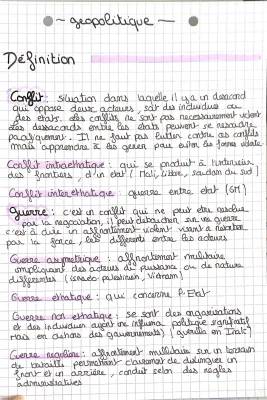 ~ geopolitique ~
Définition
Conflit : situation dans laquelle il y a un desaccord
qui oppose deux acteurs, soit des individus ou
des etats. Les conflits ne sont pas necessairement violent
les desaccords entre les etats peuvent se resoudre
pacifiquement. Il ne faut pas lutter contre les conflits
mais apprendre à les gerer pour eviter les formes
Conflit intraethatique : qui se produit à l'interieur
des frontières, d'un etat (Mali, Libre, soudan du sud)
Conflit interethatique : guerre entre etat (GM)
Guerre : c'est un conflit qui ne peut etre resolue
par la negociation, il peut debaucher sur une guerre
c'est à dire un affrontement violent visant a
par la force, les differents entre les acteurs
Guerre asymetrique : affrontement militaire
impliquant des acteurs de puissance ou de nature
differentes (israelo palestinien, Vietnam)
Guerre ethatique : qui concerne l'Etat
Guerre non ethatique : se sont des organisations
et des individus ayant une influence politique significatif
mais en dehors des gouvernements (guerilla en Irak)
Guerre reguliere : affrontement militaire sur un terrain
de bataille permettant clairement de distinguer un
front et un arrière, conduit selon des regles
administratives